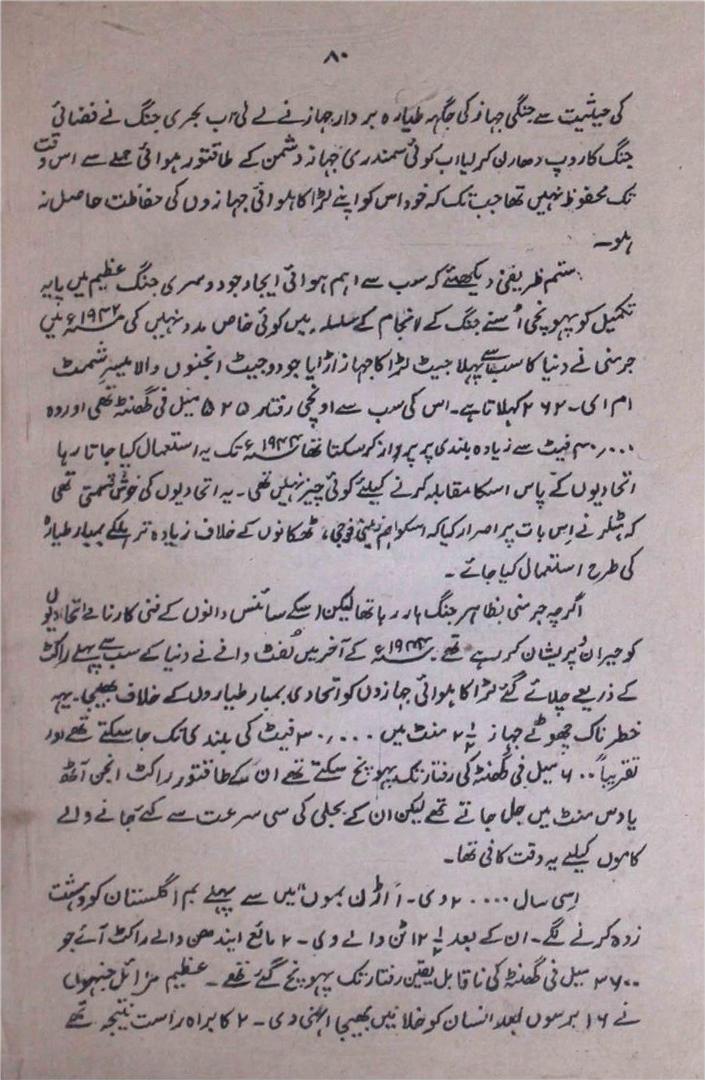 ۸۰
کی حیثیت سے جنگی جہاز کی جگہہ طیارہ بردار جہاز نے لے لی اب بحری جنگ نے فضائی
جنگ کا روپ دھارن کر لیا اب کوئی سمندری جہاز دشمن کے طاقتور ہوائی حملے سے اس وقت
تک محفوظ نہیں تھا جب تک کہ خود اس کو اپنے لڑاکا ہوائی جہازوں کی حفاظت حاصل نہ
ہو۔
ستم ظریفی دیکھئے کہ سب سے اہم ہوائی ایجاد جو دوسری جنگ عظیم میں پایہ
تکمیل کو پہونچی اُسنے جنگ کے انجام کے سلسلہ میں کوئی خاص مدد نہیں کی ۱۹۴۲ء میں
جرمنی نے دنیا کا سب سے پہلا جیٹ لڑاکا جہاز اڑایا جو دو جیٹ انجنوں والا میسرشمٹ
ام ای۔ ۲۶۲ کہلاتا ہے۔ اس کی سب سے اونچی رفتار ۵۲۵ میل فی گھنٹہ تھی اور وہ
۴۰,۰۰۰ فیٹ سے زیادہ بلندی پر پرواز کر سکتا تھا ۱۹۴۴ء تک یہ استعمال کیا جاتا رہا
اتحادیوں کے پاس اسکا مقابلہ کرنے کیلئے کوئی چیز نہیں تھی۔ یہ اتحادیوں کی خوش قسمتی تھی
کہ ہٹلر نے اِس بات پر اصرار کیا کہ اسکو اہم زمینی فوجی، ٹھکانوں کے خلاف زیادہ تر ہلکے بمبار طیارہ
کی طرح استعمال کیا جائے۔
اگرچہ جرمنی بظاہر جنگ ہار رہا تھا لیکن اسکے سائنس دانوں کے فنی کارنامے اتحادیوں
کو حیران و پریشان کر رہے تھے ۱۹۴۴ء کے آخر میں لُفٹ وافے نے دنیا کے سب سے پہلے راکٹ
کے ذریعے چلائے گئے لڑاکا ہوائی جہازوں کو اتحادی بمبار طیاروں کے خلاف بھیجا۔ یہہ
خطرناک چھوٹے جہاز ۲½ منٹ میں ۳۰,۰۰۰ فیٹ کی بلندی تک جا سکتے تھے اور
تقریباً ۶۰۰ میل فی گھنٹہ کی رفتار تک پہونچ سکتے تھے ان کے طاقتور راکٹ انجن آٹھ
یا دس منٹ میں جل جاتے تھے لیکن ان کے بجلی کی سی سرعت سے کئے جانے والے
کاموں کیلئے یہ وقت کافی تھا۔
اِسی سال ۲۰۰۰۰ وی۔ ا اڑن بموں" میں سے پہلے بم انگلستان کو دہشت
زدہ کرنے لگے۔ ان کے بعد ۱۲½ ٹن والے وی۔ ۲ مائع ایندھن والے راکٹ آئے جو
۳۶۰۰ میل فی گھنٹہ کی ناقابل یقین رفتار تک پہونچ گئے تھے۔ عظیم مزائل جنہوں
نے ۱۶ برسوں بعد انسان کو خلا میں بھیجا اِنہی وی۔ ۲ کا براہ راست نتیجہ تھے